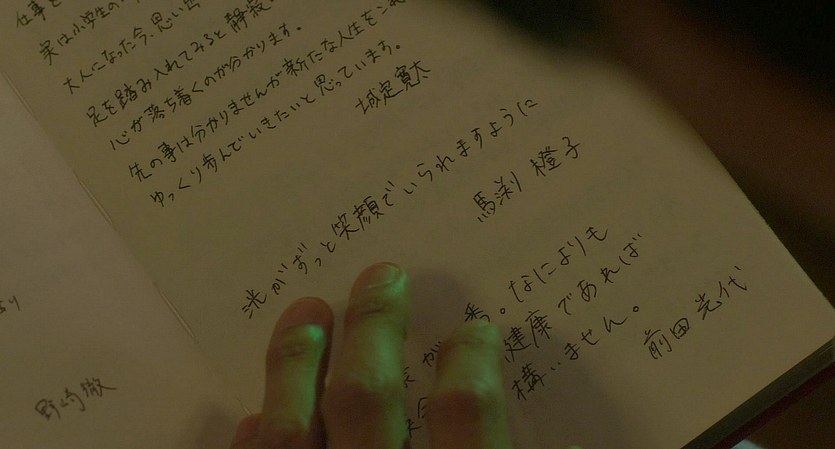 仕事を
実は小学生の
大人になった今、思い
足を踏み入れてみると静寂
心が落ち着くのが分かります。
先の事は分かりませんが新たな人生をこれ
ゆっくり歩んでいきたいと思っています。
城定寛太
洸がずっと笑顔でいられますように
馬渕 橙子
番。なによりも
健康であれば
構いません。
前田 光代
野崎徹